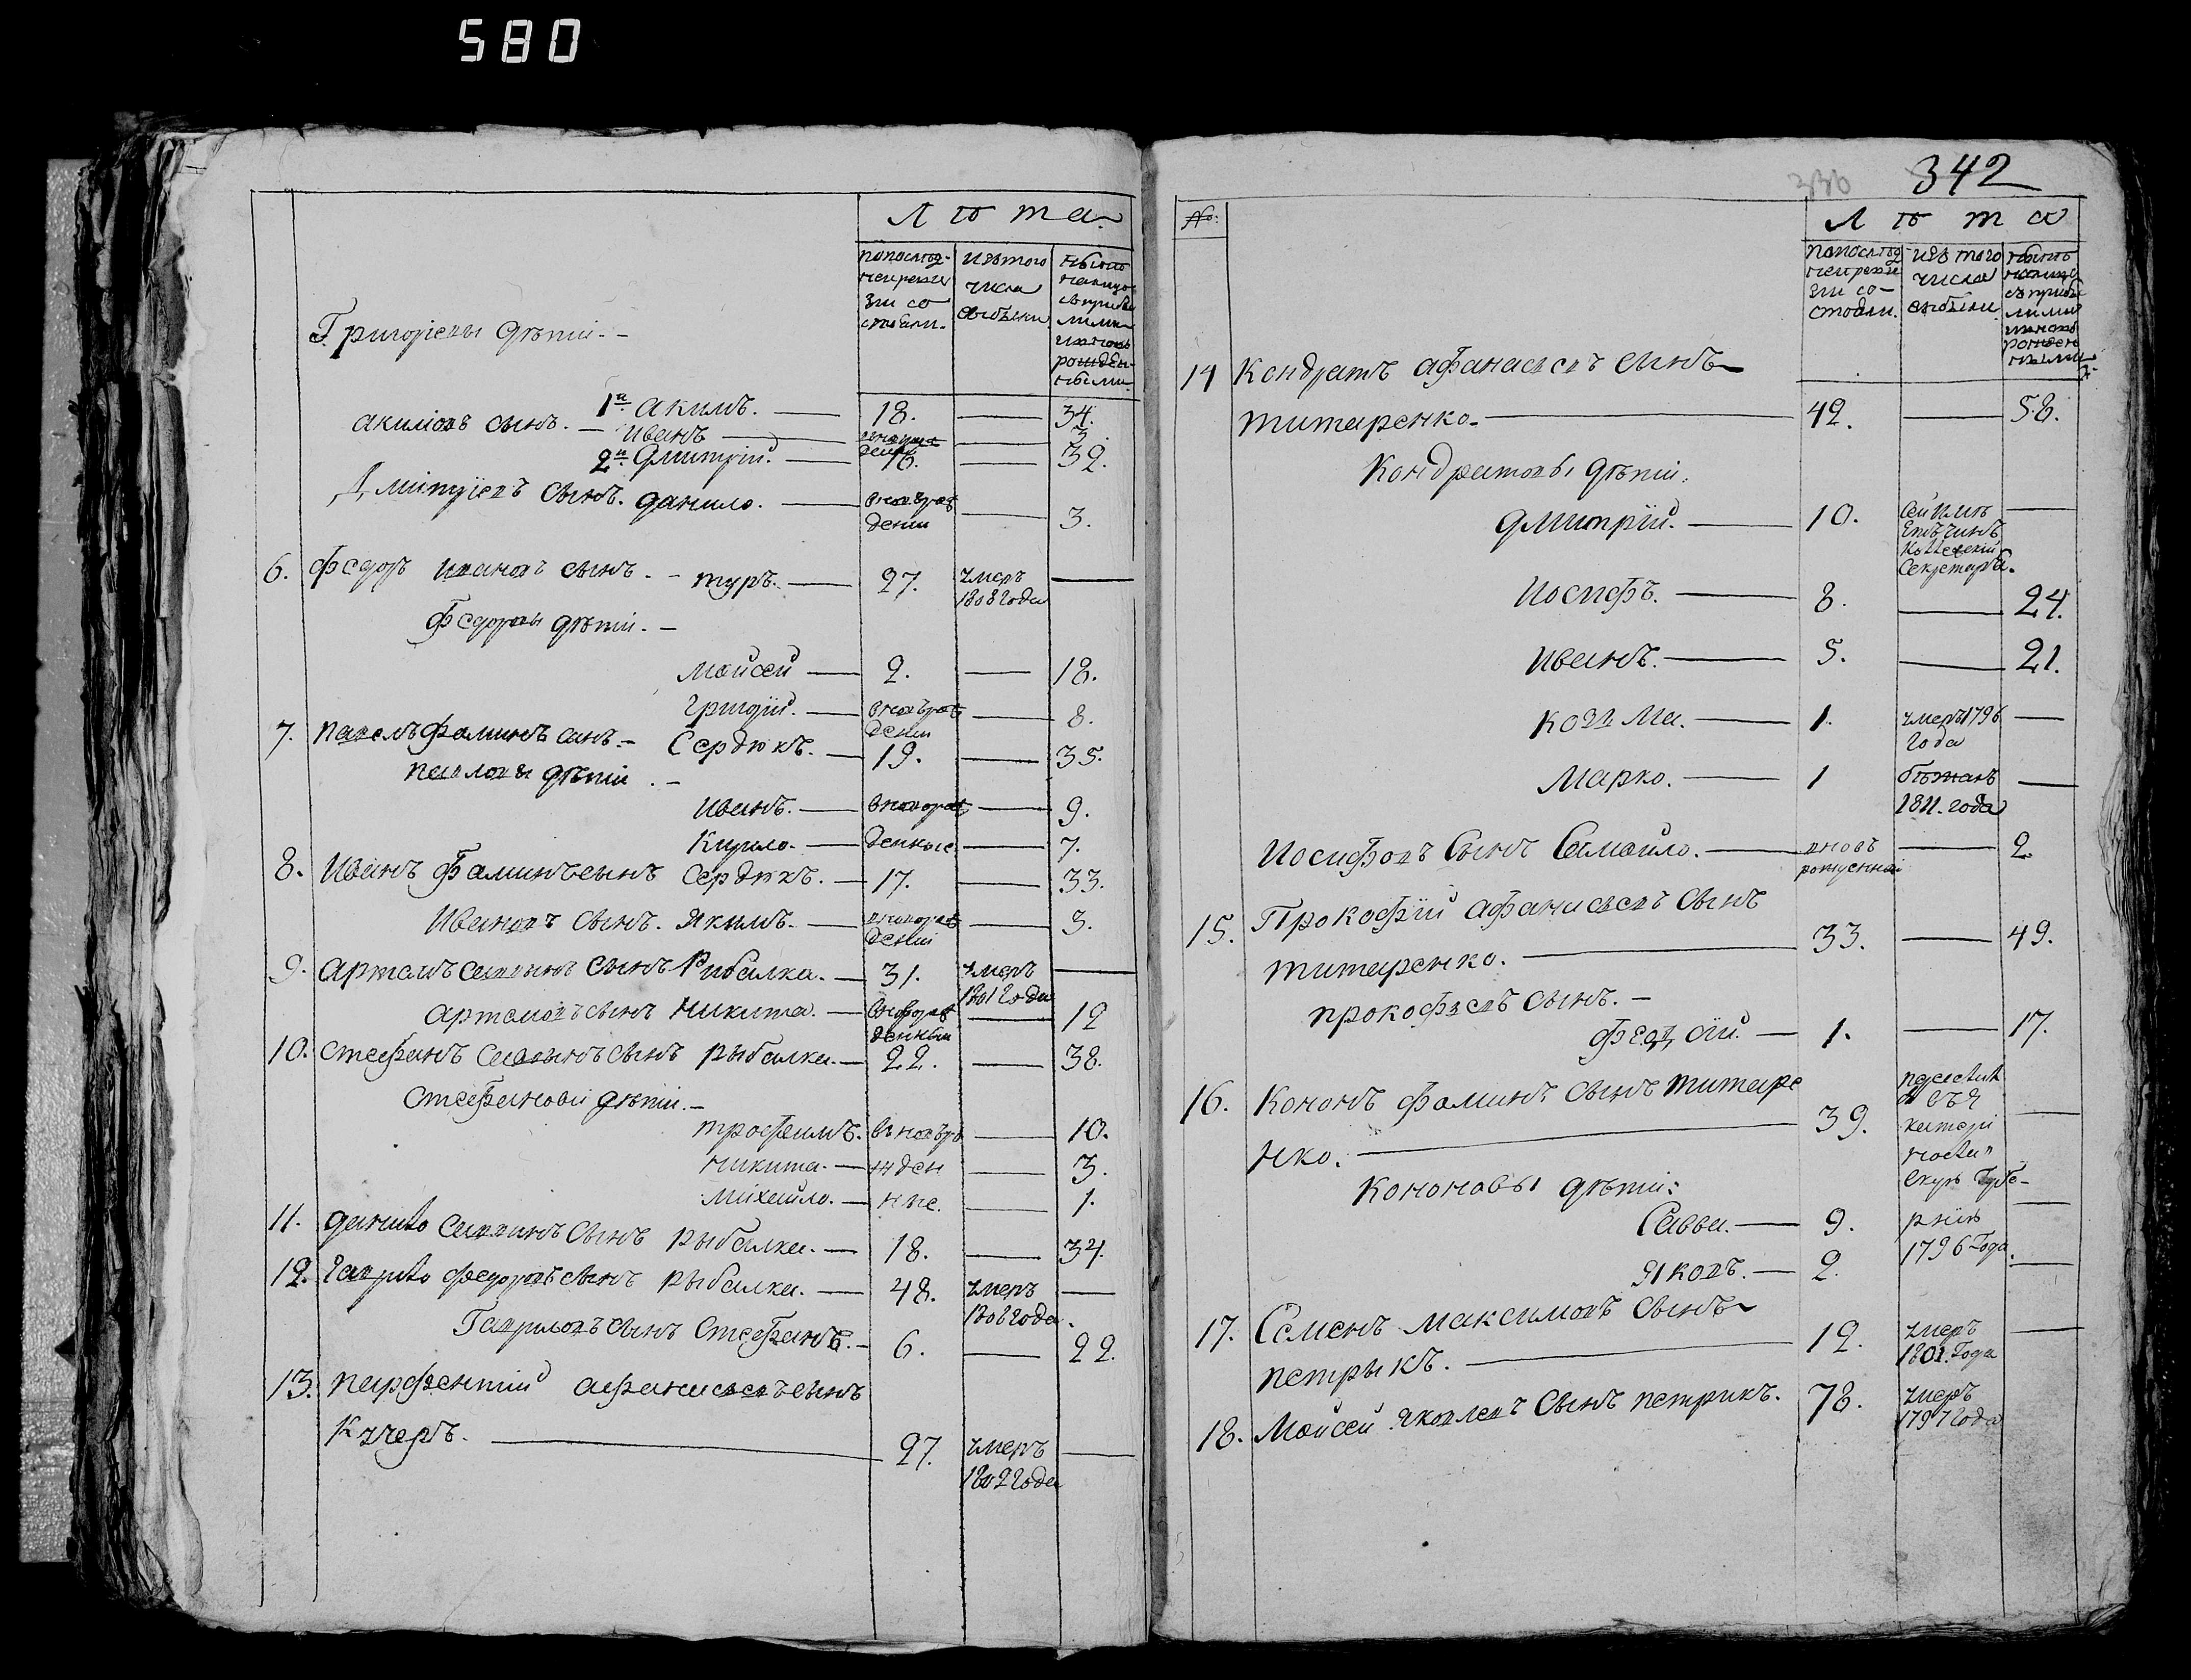 580
Лѣта.
попослѣд-
ней реви
зіи со
стояли.
изъ того
числа
выбыли
нынѣ
налицо
съ прибы
лыми
и вновь
рожден-
ными
Григоріевы дѣти. -
1й. Акимъ. — 18. — 34.
Акимовъ сынъ. — Иванъ — — 3.
2й. Дмитрій. — 16. — 32.
Дмитріевъ сынъ. Данило. — вновьрож
дени — 3.
6. Федоръ Ивановъ сынъ. - Туръ. — 27. умеръ —
1808 года
Федоровы дѣти. -
Мойсей — 2. — 18.
Григорій. — вновьрож — 8.
дени
7. Павелъ Фоминъ сынъ. - Сердюкъ. — 19. — 35.
Павловы дѣти. -
Иванъ. — вноворож — 9.
Кирило. — денные. — 7.
8. Иванъ Фоминъ сынъ Сердюкъ. — 17. — 33.
Ивановъ сынъ. Якимъ. — вноворож — 3.
дени
9. Артемъ Саввинъ сынъ Рибалка. — 31. умеръ —
1801 года
Артемовъ сынъ Никита. — вноворож — 12
денный
10. Стефанъ Саввинъ сынъ Рыбалка. — 22. — 38.
Стефановы дѣти. -
Трофимъ. вновьро — 10.
Никита. — жден — 3.
Михайло. — ные. — 1.
11. Данило Саввинъ сынъ Рыбалка. — 18. — 34.
12. Гаврило Федоровъ сынъ Рыбалка. — 48. умеръ —
1808 года.
Гавриловъ сынъ Стефанъ. - 6. — 22.
13. Парфентий Афанасьевъ сынъ
Кучеръ. — 27. умеръ —
1802 года
336 342
№:
Лѣта
попослѣд
ней реви
зіи со-
стояли.
изъ того
числа
выбыли
нынѣ
налицо
съ прибы
лыми
и вновь
рожден
ными
14 Кондратъ Афанасьевъ сынъ
Титаренко. — 42. — 58.
Кондратовы дѣти.
Дмитрій. — 10. —
Коллежскій
Секретарь.
Иосифъ. — 8. — 24.
Иванъ. — 5. — 21.
Козма. — 1. умеръ 1796 —
года
Марко. — 1 бѣжалъ —
1811. года
Иосифовъ сынъ Самойло. — вновь — 2
рожденный
15. Прокофій Афанасьевъ сынъ
Титаренко. — 33. — 49.
Прокофьевъ сынъ. -
Федосій. — 1. — 17.
16. Кононъ Фоминъ сынъ Титаре
нко. — 39. —
катери
нослав
скую Губе-
рнію
1796 года.
Кононовы дѣти:
Савва. — 9. —
Яковъ. — 2. —
17. Семенъ Максимовъ сынъ
Петрыкъ. — 12. умеръ —
1801. года
18. Мойсей Яковлевъ сынъ Петрикъ. 78. умеръ
1797 года